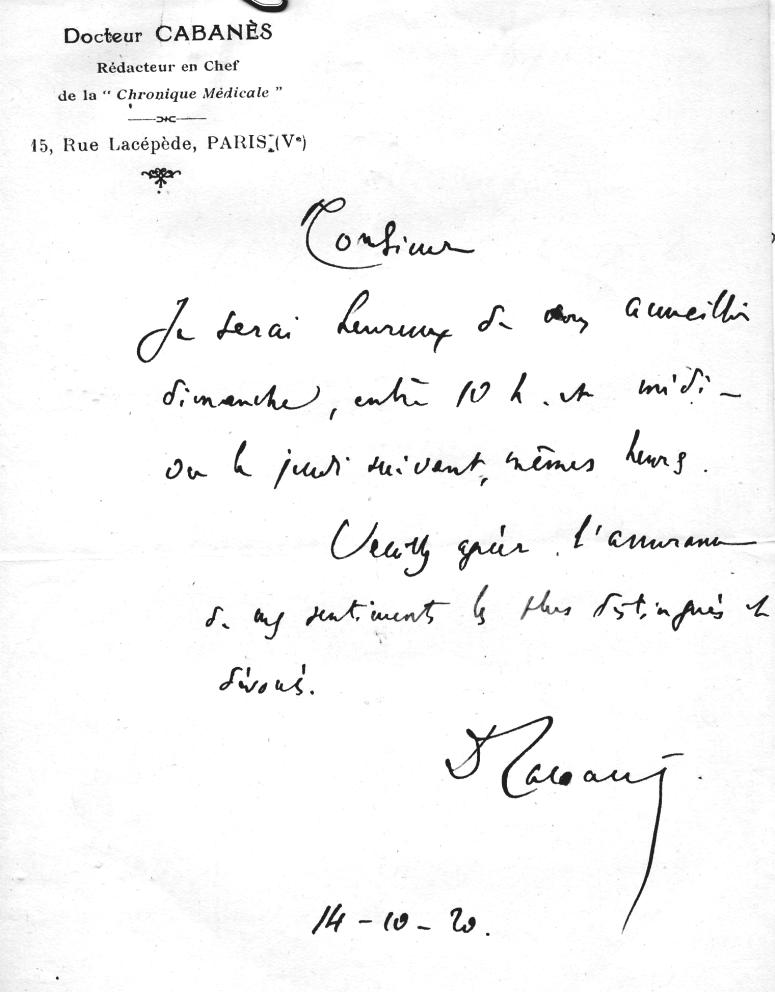 Docteur CABANÈS
Rédacteur en Chef
de la " Chronique Médicale "
15, Rue Lacépède, PARIS (Vᵉ)
Monsieur
Je serai heureux de vous accueillir
dimanche, entre 10 h. et midi –
ou le jeudi suivant, mêmes heures.
Veuillez agréer l'assurance
de mes sentiments les plus distingués et
dévoués.
Dr Cabanès
14 - 10 - 20.